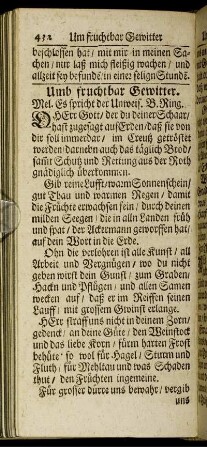 432 Um fruchtbar Gewitter
beschlossen hat/ mit mir in meinen Sa-
chen/ nur laß mich fleißig wachen/ und
allzeit sey befundē/ in einer selign Stundē.
Umb fruchtbar Gewitter.
Mel. Es spricht der Unweis. B. Ring.
OHErr Gott/ der du deiner Schaar/
hast zugesagt auf Erden/ daß sie von
dir soll immerdar/ im Creutz getröstet
werden: darnebn auch das täglich Brod/
samt Schutz und Rettung aus der Noth
gnädiglich überkommen.
Gib reine Lufft/ warm Sonnenschein/
gut Thau und warmen Regen/ damit
die Früchte erwachsen fein/ durch deinen
milden Seegen: die in alln Landen früh
und spat/ der Ackermann geworffen hat/
auf dein Wort in die Erde.
Ohn die verlohren ist alle Kunst/ all
Arbeit und Vergnügen/ wo du nicht
geben wirst dein Gunst/ zum Graben/
Hackn und Pflügen/ und allen Samen
wecken auf/ daß er im Reiffen seinen
Lauff/ mit grossem Gwinst erlange.
HErr straff uns nicht in deinem Zorn/
gedenck/ an deine Güte/ den Weinstock
und das liebe Korn/ fürm harten Frost
behüte: so wol für Hagel/ Sturm und
Fluth/ für Mehltau und was Schaden
thut/ den Früchten ingemeine.
Für grosser dürre uns bewahr/ vergib
uns